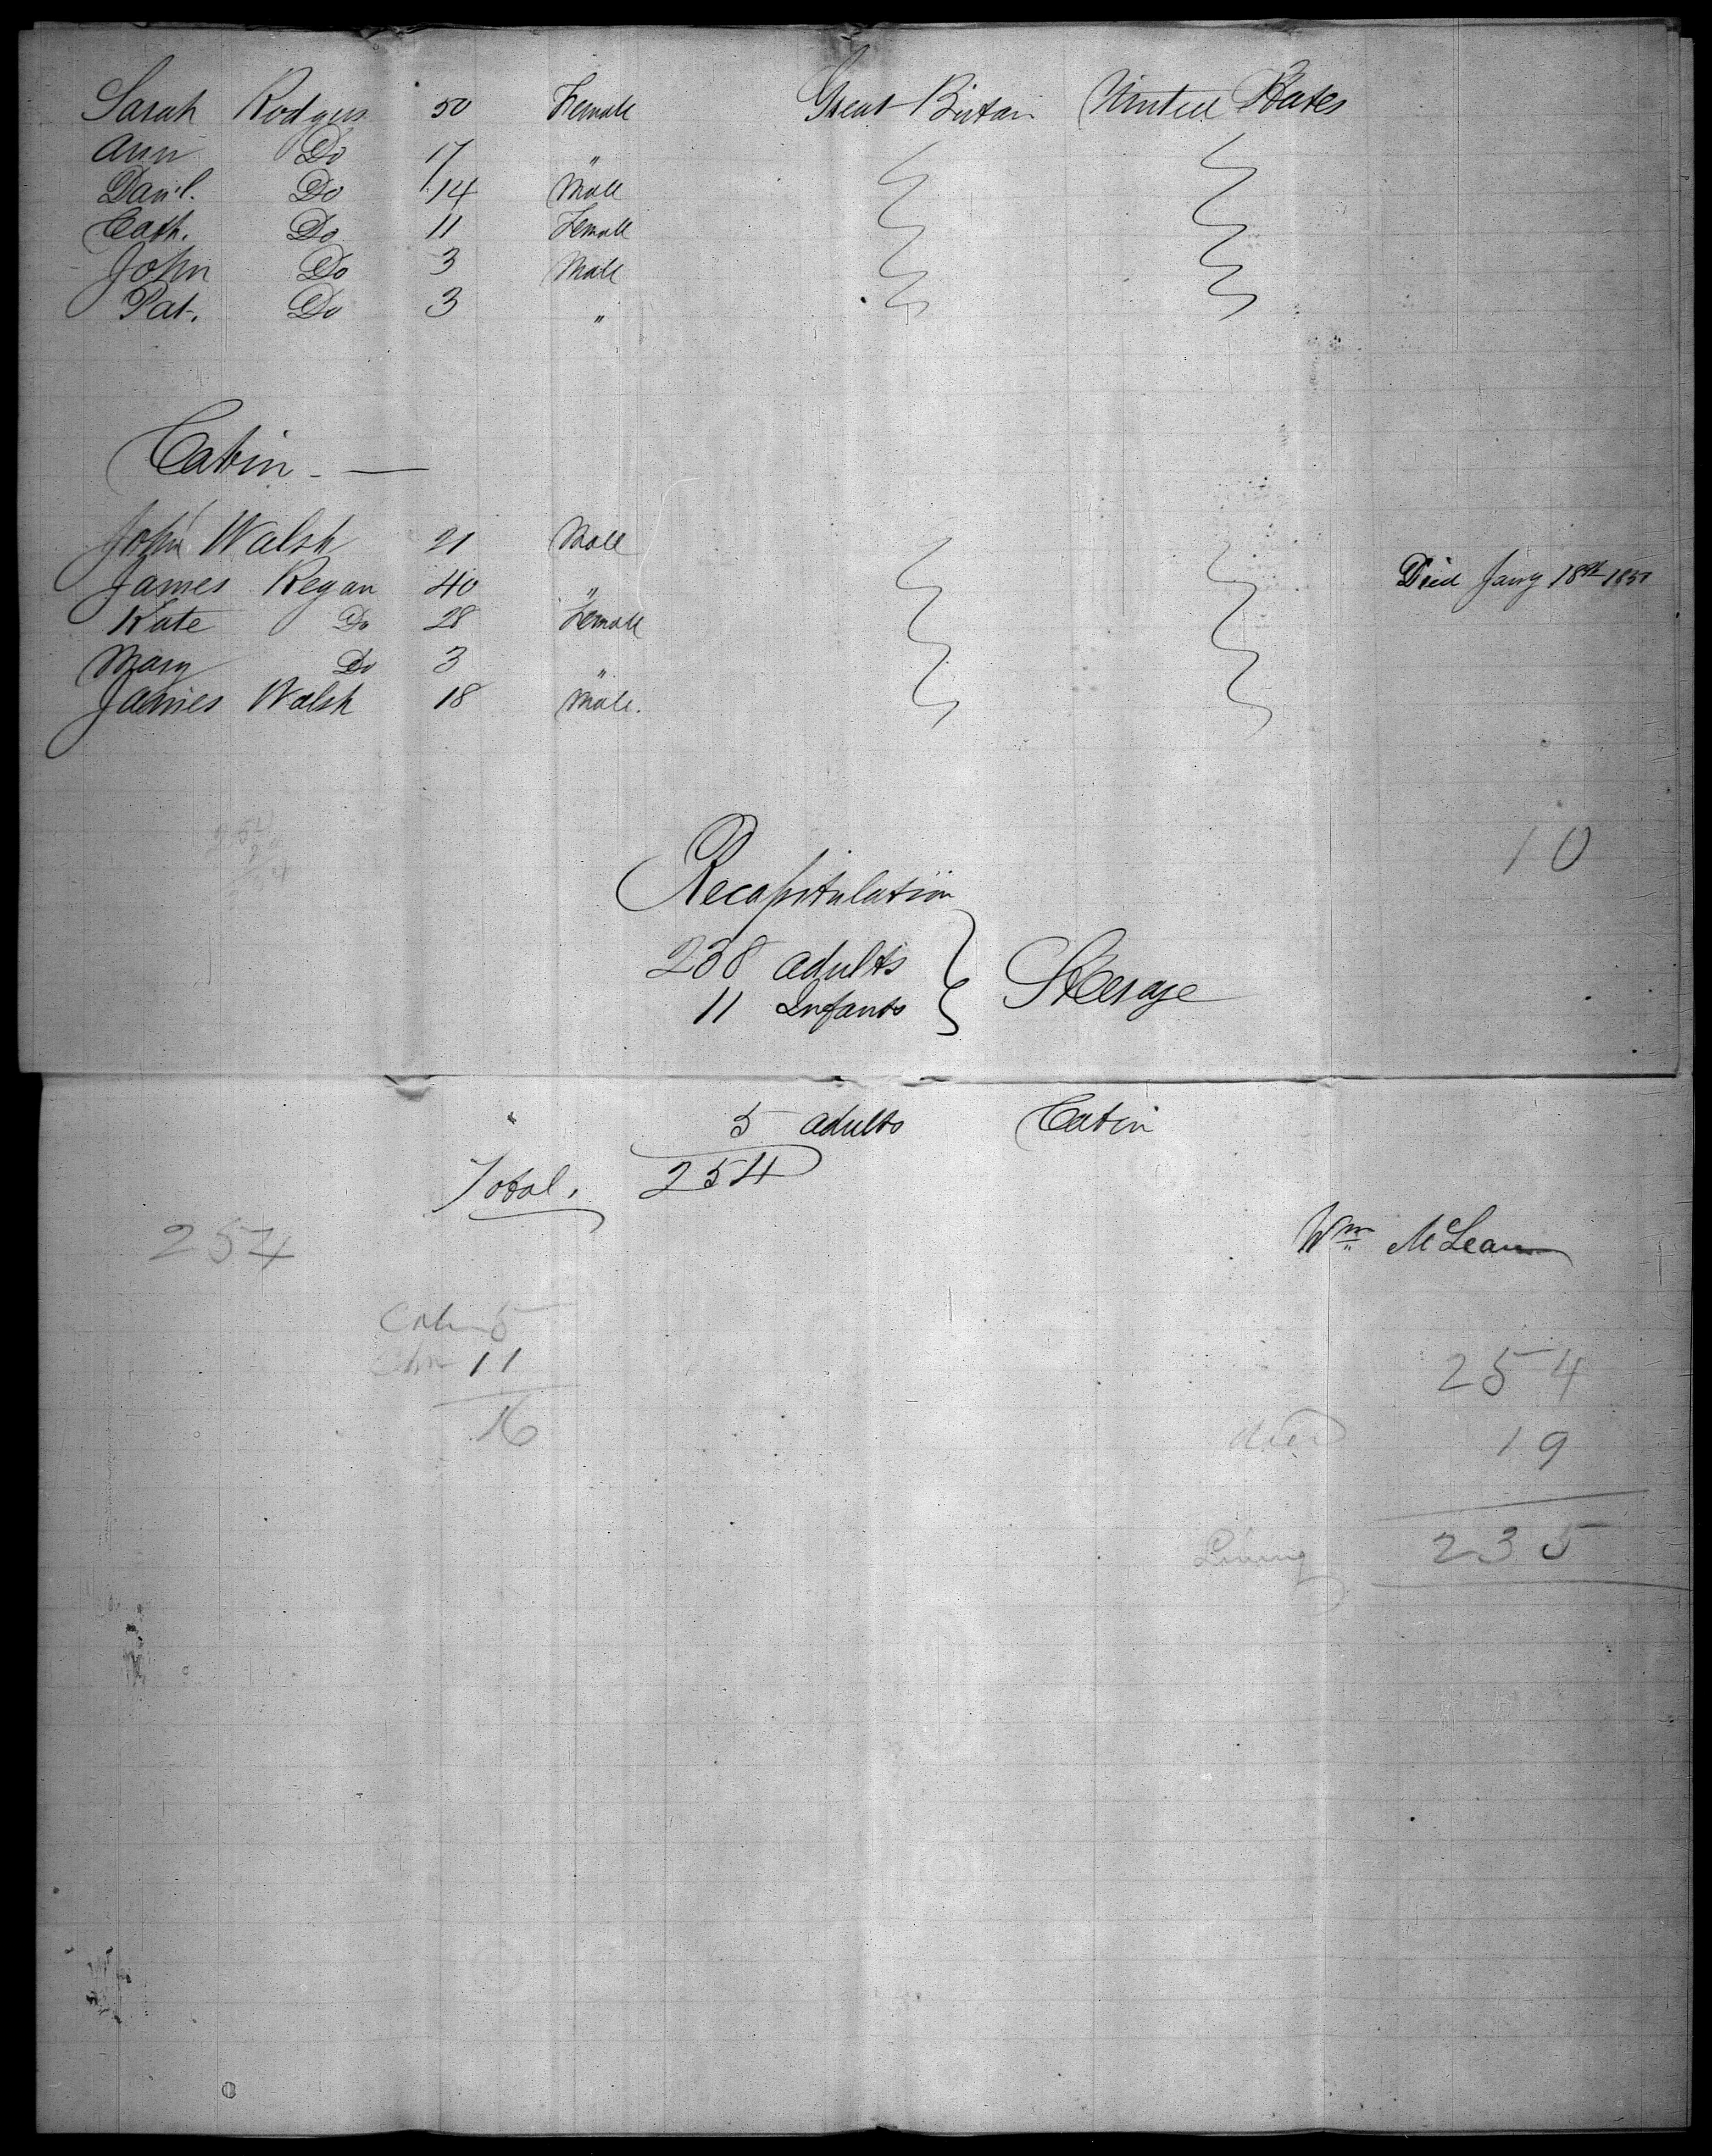 Sarah Rodgers 50 Female Great Britain United States
Ann Do 17 "
Danl. Do 14 Male
Cath. Do 11 Female
John Do 3 Male
Pat. Do 3 "
Cabin
John Walsh 21 Male
James Regan 40 " Died Jany 18th 1851
Kate Do 28 Female
Mary Do 3 "
James Walsh 18 Male.
10
Recapitulation
238 adults
11 Infants } Sterage
5 adults Cabin
Total. 254
254
Wm McLean
Cabin 5
Chn 11
16
254
died 19
Living 235